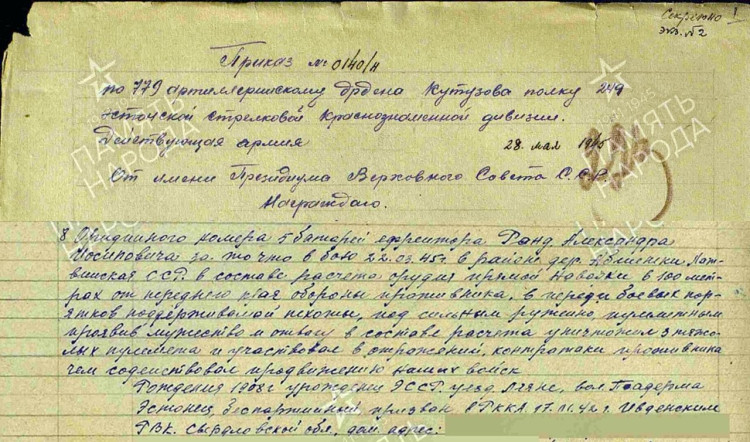 Секретно 1
экз. №2
Приказ № 0140/н
по 779 артиллерийскому ордена Кутузова полку 249
эстонской стрелковой Краснознаменной дивизии.
Действующая армия 28 мая 1945
От имени Президиума Верховного Совета С.С.Р.
Награждаю:
8 Орудийного номера 5 батареи ефрейтора Ранд Александра
Иосиповича за то что в бою 22.03.45г в районе дер. Лат-
вийская ССР. в составе расчета орудия прямой наводки в 100 мет-
рах от переднего края обороны противника, в переди боевых пор-
ятков поддерживаемой пехоты, под сильным ружейно, пулеметным
проявив мужество и отвагу в составе расчета уничтожил 3 тяже-
лых пулемета и участвовал в отражений, контратаки противника
чем содействовал продвижению наших войск
Рождения 1908г урожденец ЭССР. уезд Ляяне, вол.
Эстонец Беспартийный призван в РККА 17.11.42г. Ивденским
РВК. Свердловской обл, дом. адрес:
ПАМЯТЬ
НАРОДА
ПАМЯТЬ
НАРОДА
ПАМЯТЬ
НАРОДА